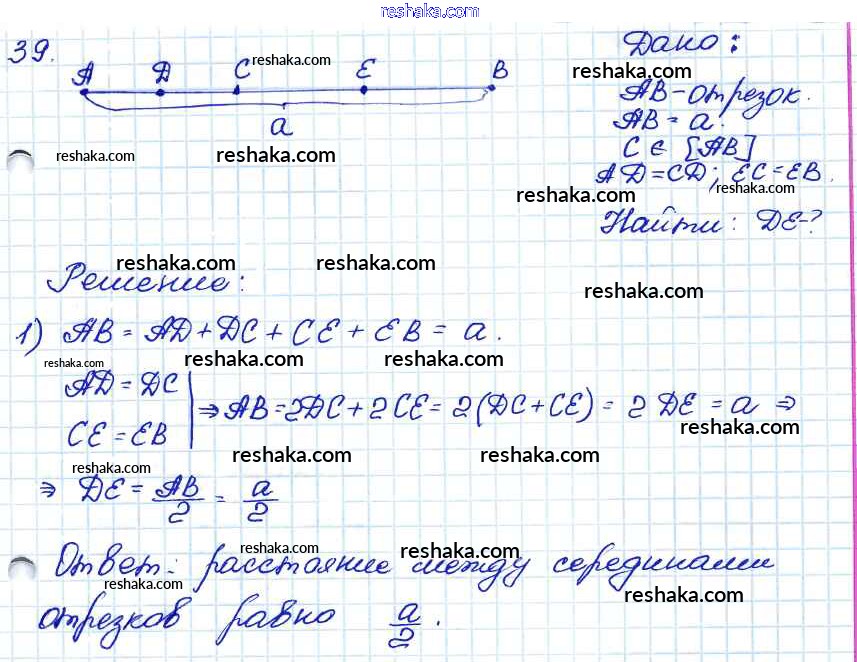 reshaka.com
39.
A D C E B
reshaka.com
a
Дано:
reshaka.com
AB - отрезок.
AB = a.
C ∈ [AB]
AD = CD; EC = EB.
reshaka.com
reshaka.com
reshaka.com
reshaka.com
Найти: DE - ?
reshaka.com
reshaka.com
Решение:
reshaka.com
1) AB = AD + DC + CE + EB = a.
reshaka.com
reshaka.com
reshaka.com
AD = DC
CE = EB
⇒ AB = 2DC + 2CE = 2(DC + CE) = 2 DE = a ⇒
reshaka.com
reshaka.com
reshaka.com
reshaka.com
⇒ DE = AB/2 = a/2
reshaka.com
reshaka.com
Ответ: расстояние между серединами
reshaka.com
reshaka.com
отрезков равно a/2.